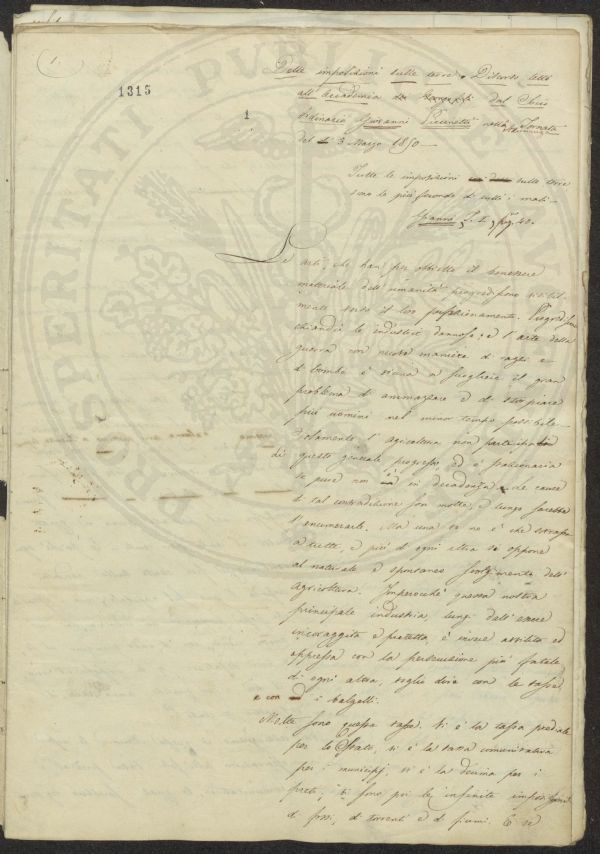 1
1315
1
Delle imposizioni sulle terre. Discorso letto
all'Accademia dei Georgofili dal Socio
Ordinario Giovanni nella Tornata
del 3 Marzo 1850 —
Tutte le imposizioni sulle terre
sono le più feconde di tutti i mali —
T. 1, pag. 40.
Le arti, che han per obbietto il benessere
materiale dell'umanità, progrediscono visibil-
mente verso il loro perfezionamento. Progrediscono
le industrie dannose; e l'arte della
guerra con nuove maniere di razzi e
di bombe è vicina a sciogliere il gran
problema di ammazzare e di storpiare
più uomini nel minor tempo possibile —
Solamente l'agricoltura non partecipa
di questo generale progresso, ed è stazionaria
se pure non è in decadenza. Le cause
di tal contradizione son molte, e lungo sarebbe
l'enumerarle. Ma una ve ne è che sovrasta
a tutte, e più di ogni altra si oppone
al naturale e spontaneo svolgimento dell'
Agricoltura. Imperocchè questa nostra
principale industria, lungi dall'essere
incoraggita e protetta, è invece avvilita ed
oppressa con la persecuzione più fatale
di ogni altra, voglio dire con le tasse,
e con i balzelli.
Molte sono queste tasse. Vi è la tassa prediale
per lo Stato, vi è la tassa comunitativa
per i municipj, vi è la decima per i
preti, vi sono poi le infinite imposizioni
di fossi, di torrenti e di fiumi. E se
PROSPERITATI PVBLICAE